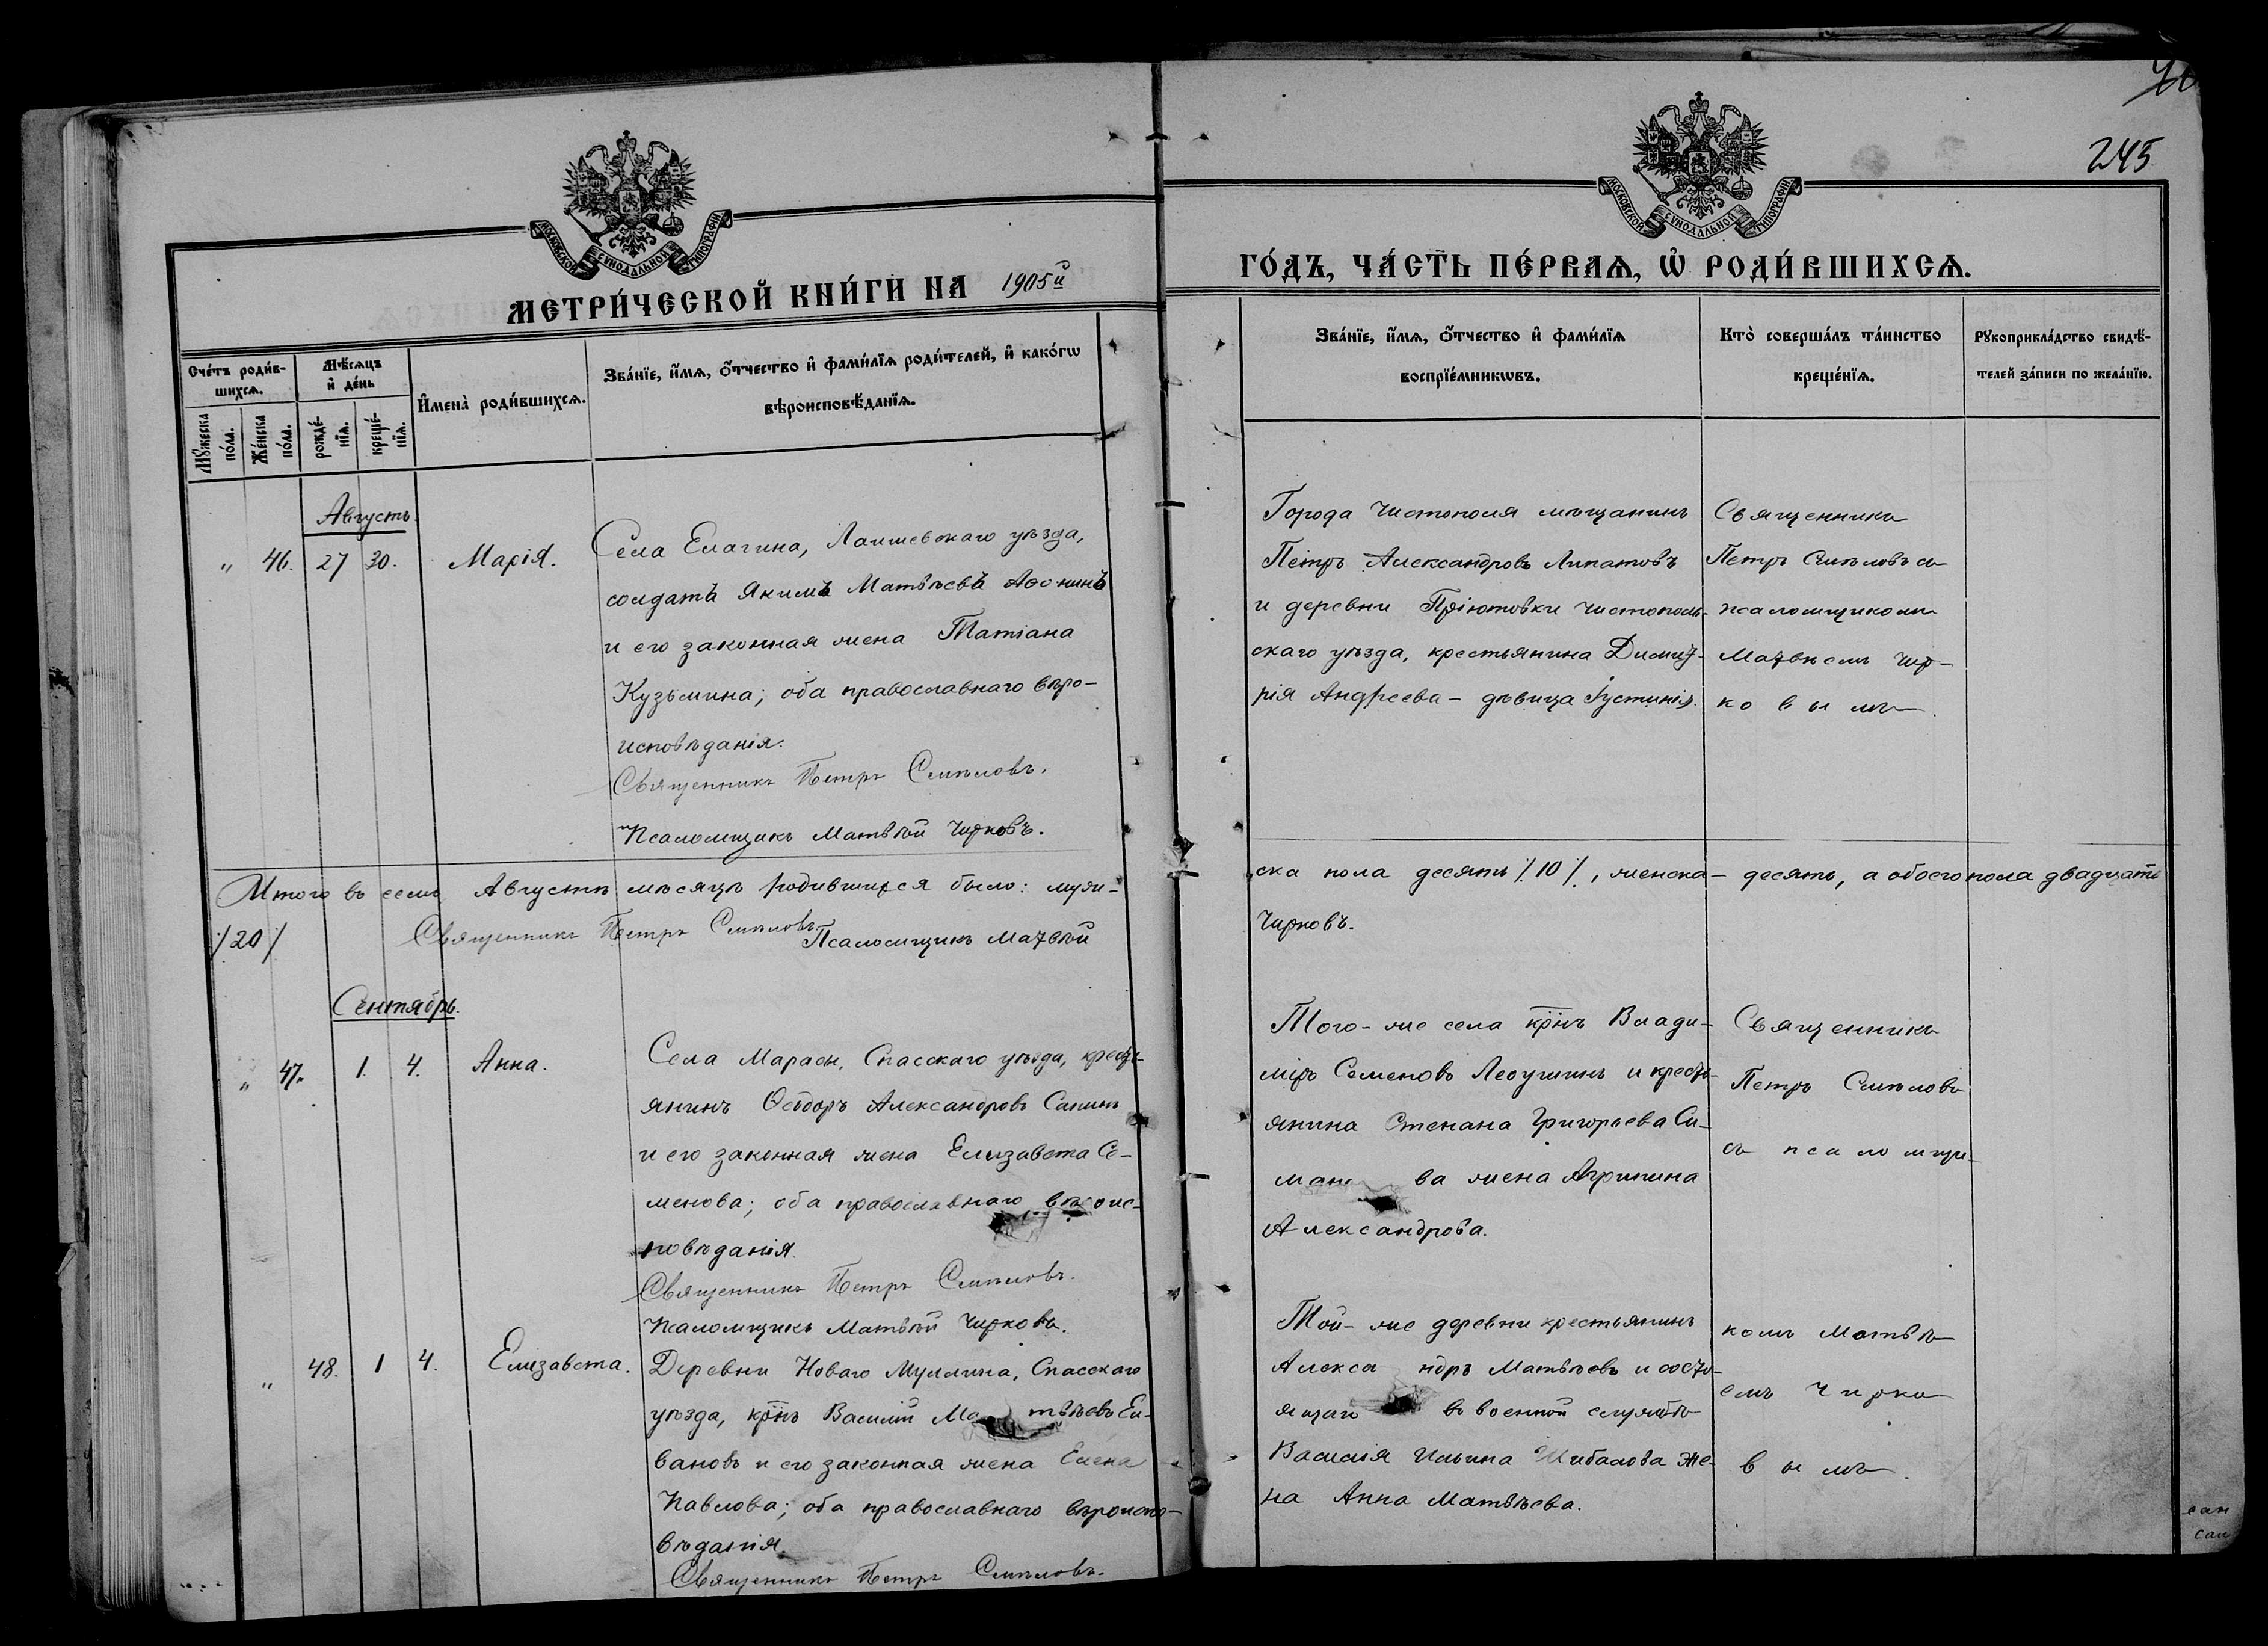 245
МОСКОВСКОЙ СѴНОДАЛЬНОЙ ТИПОГРАФІИ
МОСКОВСКОЙ СѴНОДАЛЬНОЙ ТИПОГРАФІИ
МЕТРИ́ЧЕСКОЙ КНИ́ГИ НА 1905й
ГО́ДЪ, ЧА́СТЬ ПЕ́РВАЯ, Ѡ҆ РОДИ́ВШИХСЯ.
Сче́тъ роди́в-
шихся.
Мꙋ́жеска
по́ла.
Же́нска
по́ла.
Мѣ́сяцъ
и҆ де́нь
рожде́-
нїя.
креще́-
нїя.
И҆мена̀ роди́вшихся.
Зва́нїе, и҆́мя, ѻ҆́тчество и҆ фами́лїя роди́телей, и҆ како́гѡ
вѣроисповѣ́данїя.
Зва́нїе, и҆́мя, ѻ҆́тчество и҆ фами́лїя
воспрїе́мникѡвъ.
Кто̀ соверша́лъ та́инство
креще́нїя.
Рꙋкоприкла́дство свидѣ́-
телей за́писи по жела́нїю.
Августъ.
„ 46. 27 30. Марія.
Села Елагина, Лаишевскаго уѣзда,
солдатъ Якимъ Матвѣевъ Афонинъ
и его законная жена Татіана
Кузьмина; оба православнаго вѣро-
исповѣданія.
Священникъ Петръ Смѣловъ.
Псаломщикъ Матвѣй Чирковъ.
Города Чистополя мѣщанинъ
Петръ Александровъ Липатовъ
и деревни Пріютовки Чистополь-
скаго уѣзда, крестьянина Димит-
рія Андреева - дѣвица Іустинія.
Священникъ
Петръ Смѣловъ съ
псаломщикомъ
Матвѣемъ Чир-
ковымъ.
Итого въ семъ Августѣ мѣсяцѣ родившихся было: муже-
ска пола десять /.10/., женска - десять, а обоего пола двадцать
/20/ Священникъ Петръ Смѣловъ. Псаломщикъ Матвѣй
Чирковъ.
Сентябрь.
„ 47. 1. 4. Анна.
Села Марасы, Спасскаго уѣзда, кресть-
янинъ Ѳеодоръ Александровъ Сапинъ
и его законная жена Елизавета Се-
менова; оба православнаго вѣроис-
повѣданія.
Священникъ Петръ Смѣловъ.
Псаломщикъ Матвѣй Чирковъ.
Того-же села крнъ Влади-
міръ Семеновъ и кресть-
янина Степана Григорьева Си-
ва жена Агрипина
Александрова.
Священникъ
Петръ Смѣловъ
съ псаломщи-
„ 48. 1 4. Елизавета.
Деревни Новаго Муллина, Спасскаго
уѣзда, крнъ Василій Матвѣевъ Ели-
вановъ и его законная жена Елена
Павлова; оба православнаго вѣроиспо-
вѣданія.
Священникъ Петръ Смѣловъ.
Той-же деревни крестьянинъ
Александръ Матвѣевъ и состо-
ящаго въ военной службѣ
Василія Ильина Шибалова же-
на Анна Матвѣева.
комъ Матвѣ-
емъ Чирко-
вымъ.